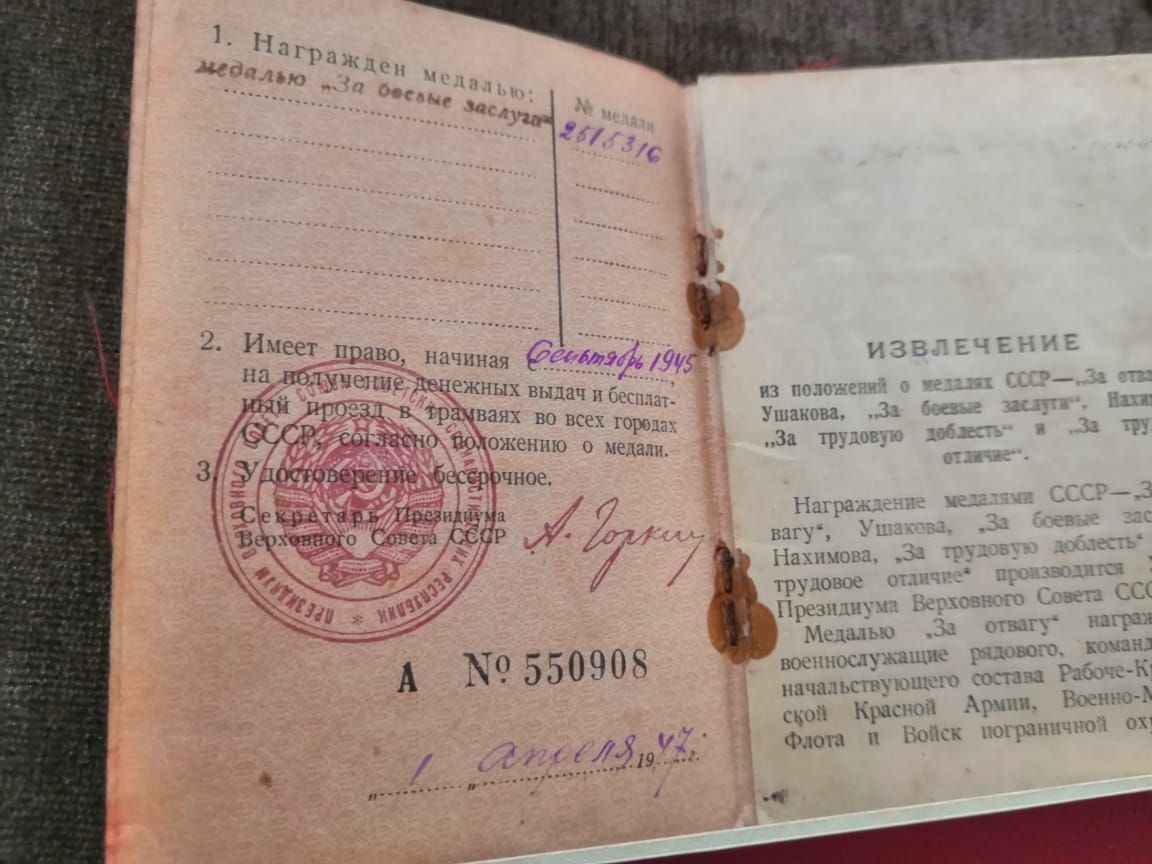 1. Награжден медалью:
медалью „За боевые заслуги“
№ медали
2515316
2. Имеет право, начиная с Сентябрь 1945,
на получение денежных выдач и бесплат-
ный проезд в трамваях во всех городах
СССР, согласно положению о медали.
3. Удостоверение бессрочное.
Секретарь Президиума
Верховного Совета СССР
А. Горкин
ПРЕЗИДИУМ ВЕРХОВНОГО СОВЕТА СОЮЗА СОВЕТСКИХ СОЦИАЛИСТИЧЕСКИХ РЕСПУБЛИК
А № 550908
„ 1 “ апреля 1947 г.
ИЗВЛЕЧЕНИЕ
из положений о медалях СССР—„За отва
Ушакова, „За боевые заслуги“, Нахим
„За трудовую доблесть“ и „За тру
отличие“.
Награждение медалями СССР—„З
вагу“, Ушакова, „За боевые зас
Нахимова, „За трудовую доблесть“
трудовое отличие“ производится
Президиума Верховного Совета ССС
Медалью „За отвагу“ награж
военнослужащие рядового, команд
начальствующего состава Рабоче-Кр
ской Красной Армии, Военно-М
Флота и Войск пограничной охр